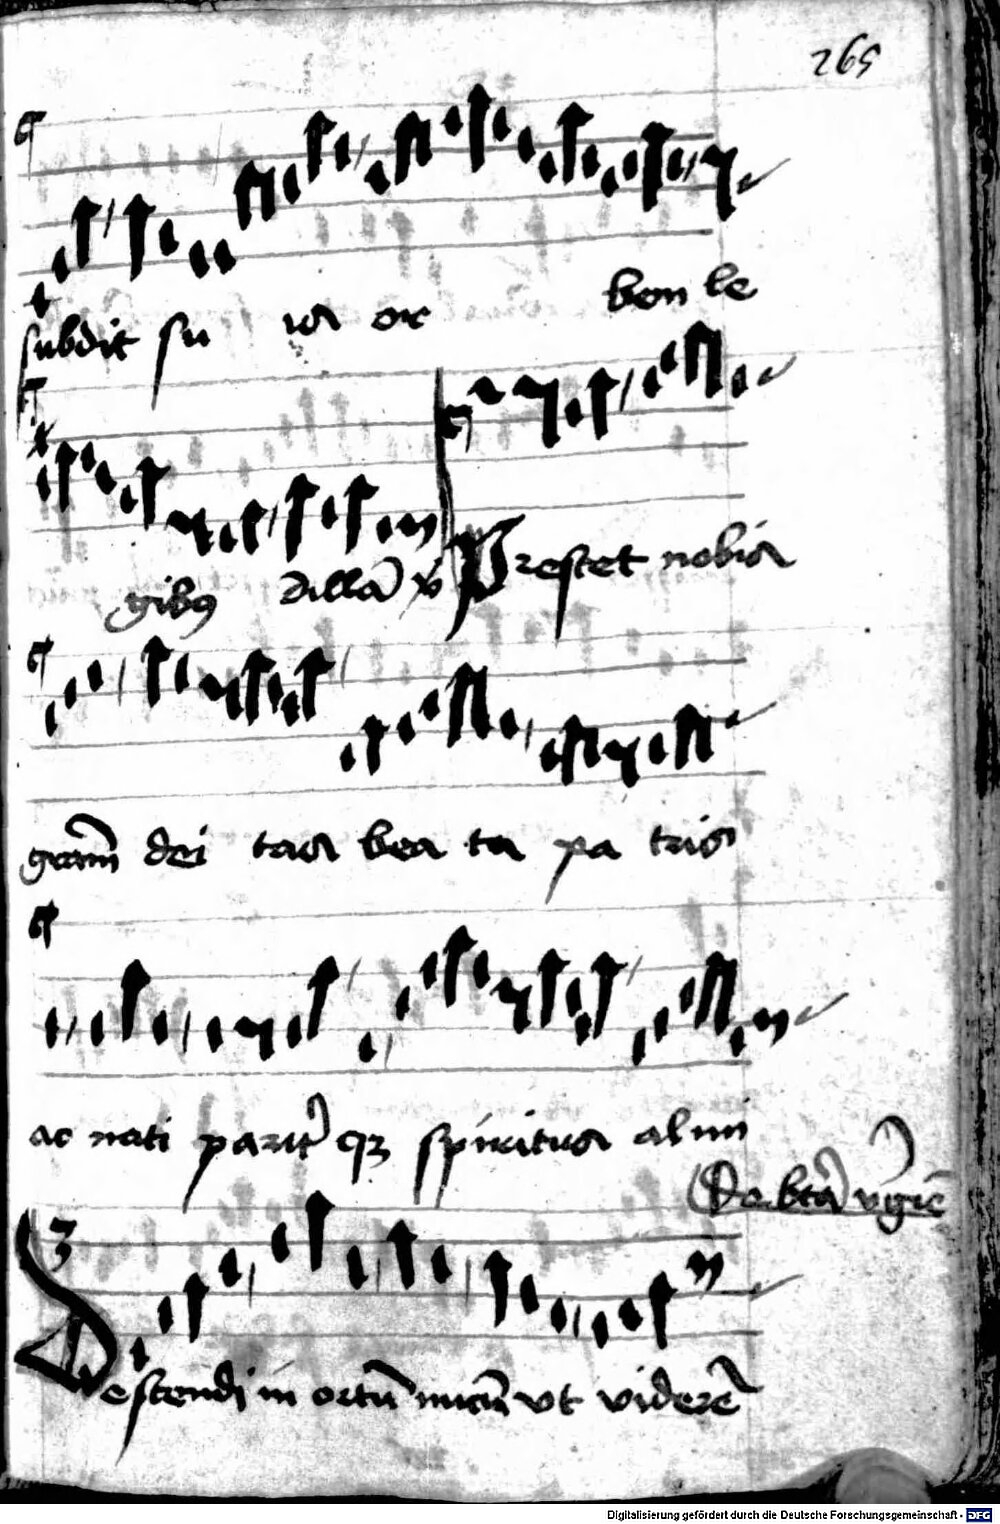 265
subdit su
gibus Prestet nobis
gram dei tas bea ta pa tris
ac nati parit' qz spiritus almi
De bta v'gie
Descendi in ortū meū vt viderē
Digitalisierung gefördert durch die Deutsche Forschungsgemeinschaft - DFG